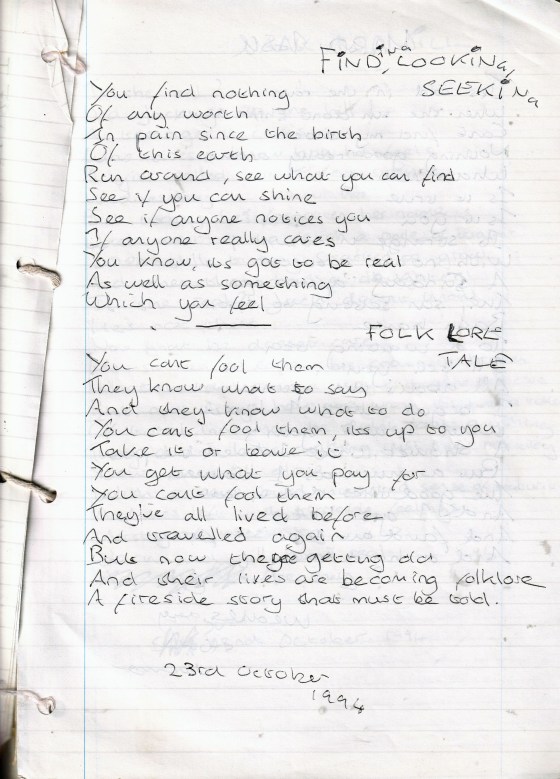 FINDING, LOOKING,
SEEKING
You find nothing
Of any worth
In pain since the birth
Of this earth
Run around, see what you can find
See if you can shine
See if anyone notices you
If anyone really cares
You know, its got to be real
As well as something
Which you feel
FOLK LORE
TALE
You cant fool them
They know what to say
And they know what to do
You cant fool them, its up to you
Take it or leave it
You get what you pay for
You cant fool them
They've all lived before
And travelled again
But now they're getting old
And their lives are becoming folklore
A fireside story that must be told.
23rd October
1994